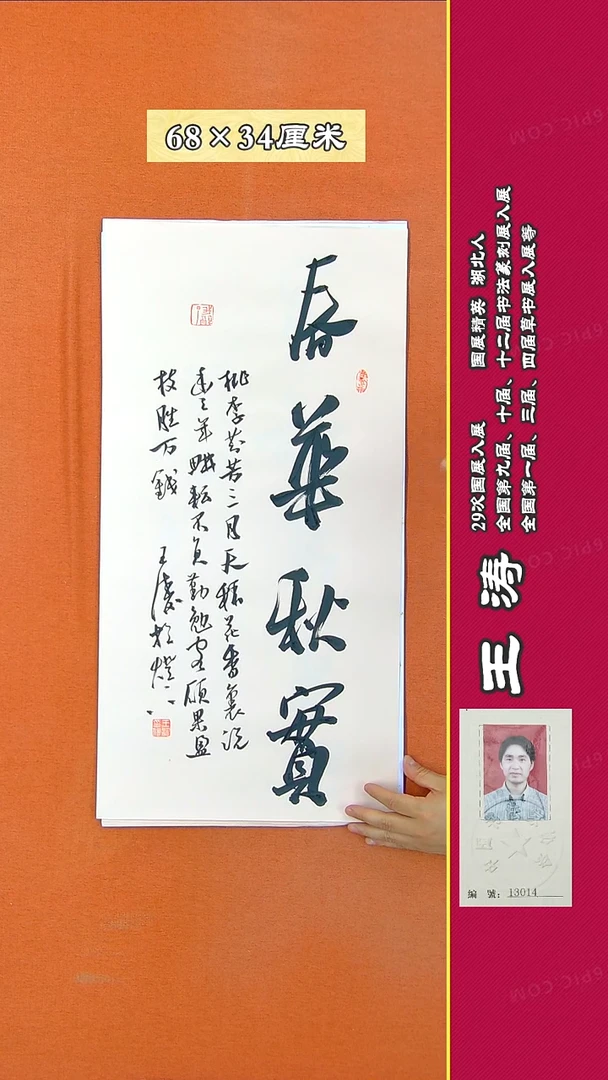 68×34厘米
春華秋實
桃李芬芳三月天稻花香裏说
年耕耘不負勤勉客碩果盈
枝胜万錢
王涛
29次国展入展 国展精英 湖北人
全国第九届、十届、十二届书法篆刻展入展
全国第一届、三届、四届草书展入展等
王涛
编號：13014